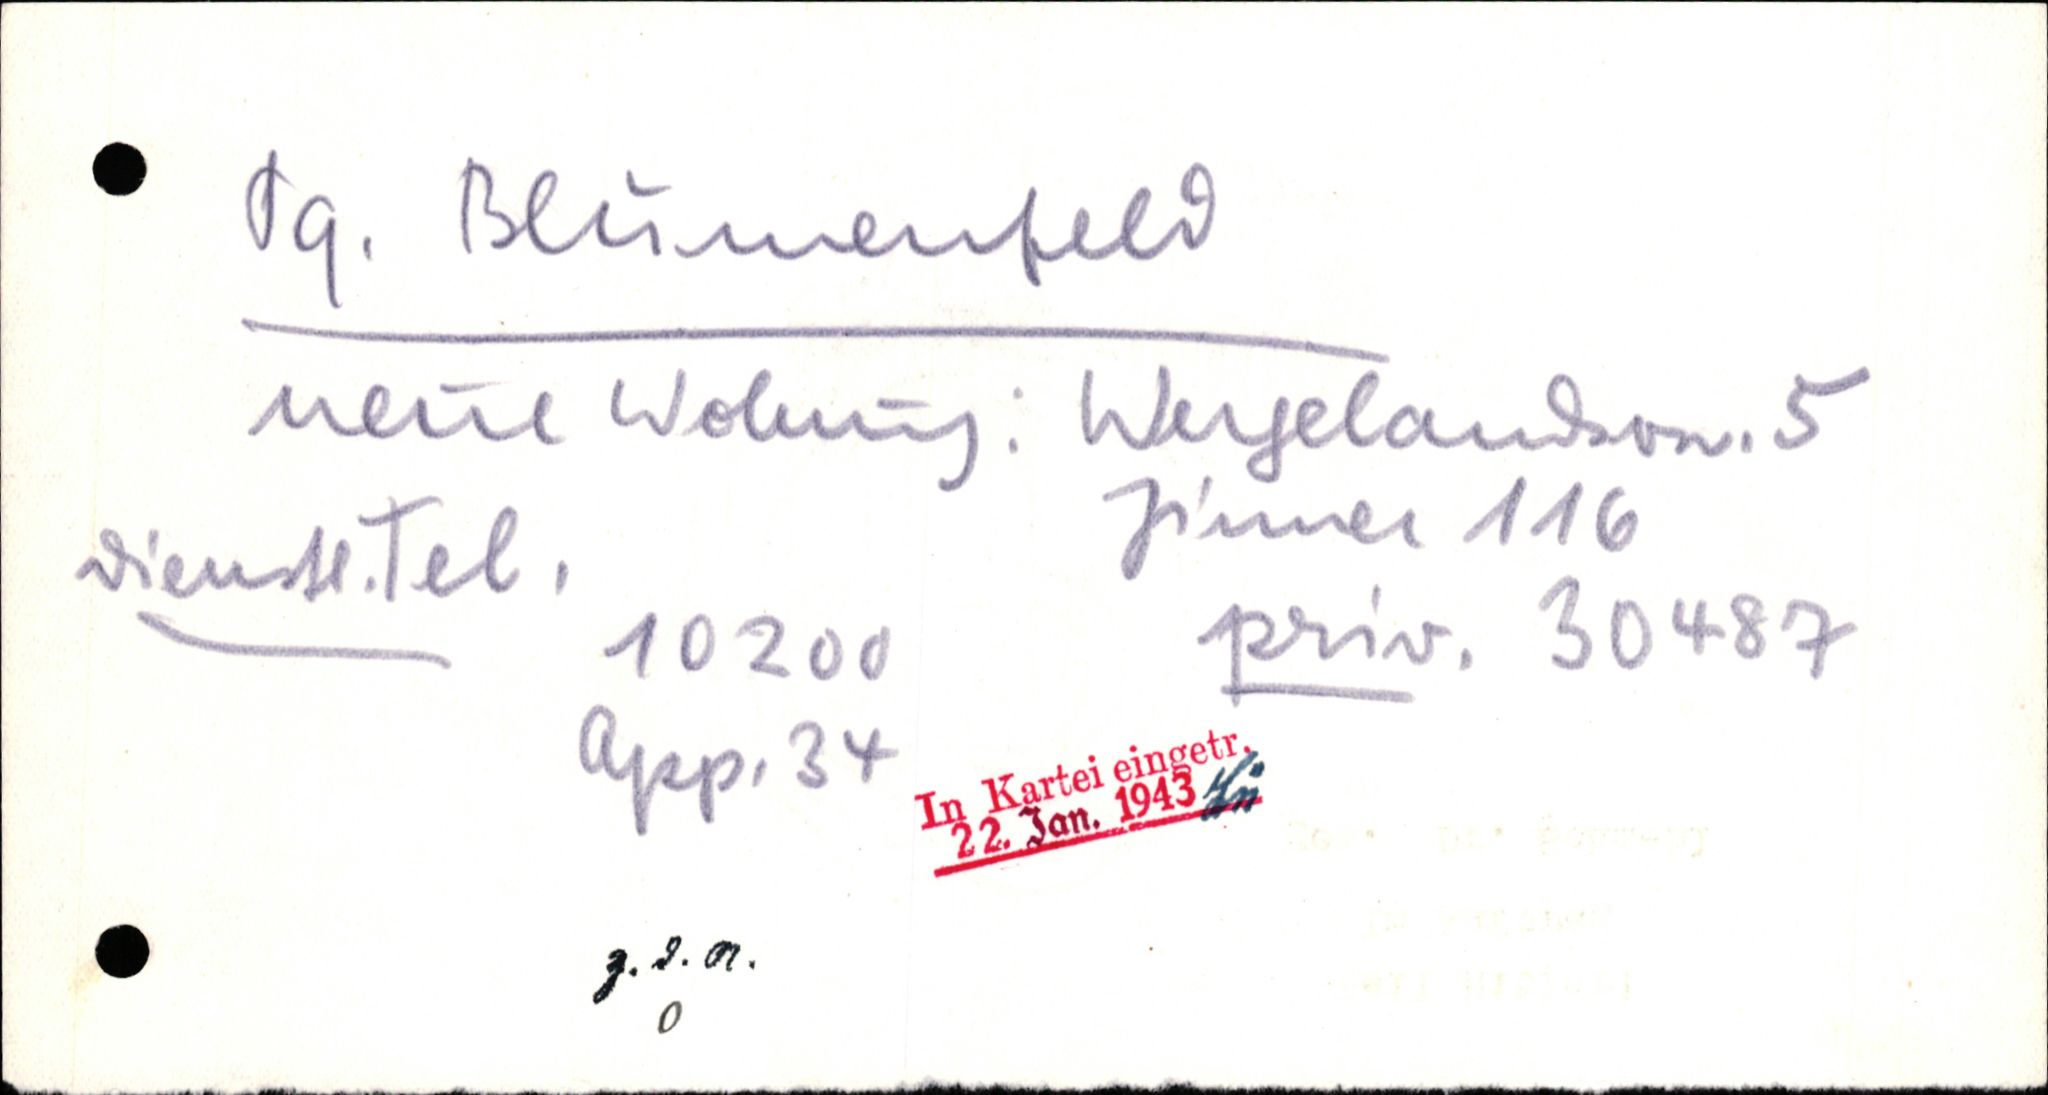 Pg. Blumenfeld
neue Wohnung: Wergelandsw. 5
Zimmer 116
dienstl. Tel.
10200
App. 34
priv. 30487
In Kartei eingetr.
22. Jan. 1943
z. d. A.
0